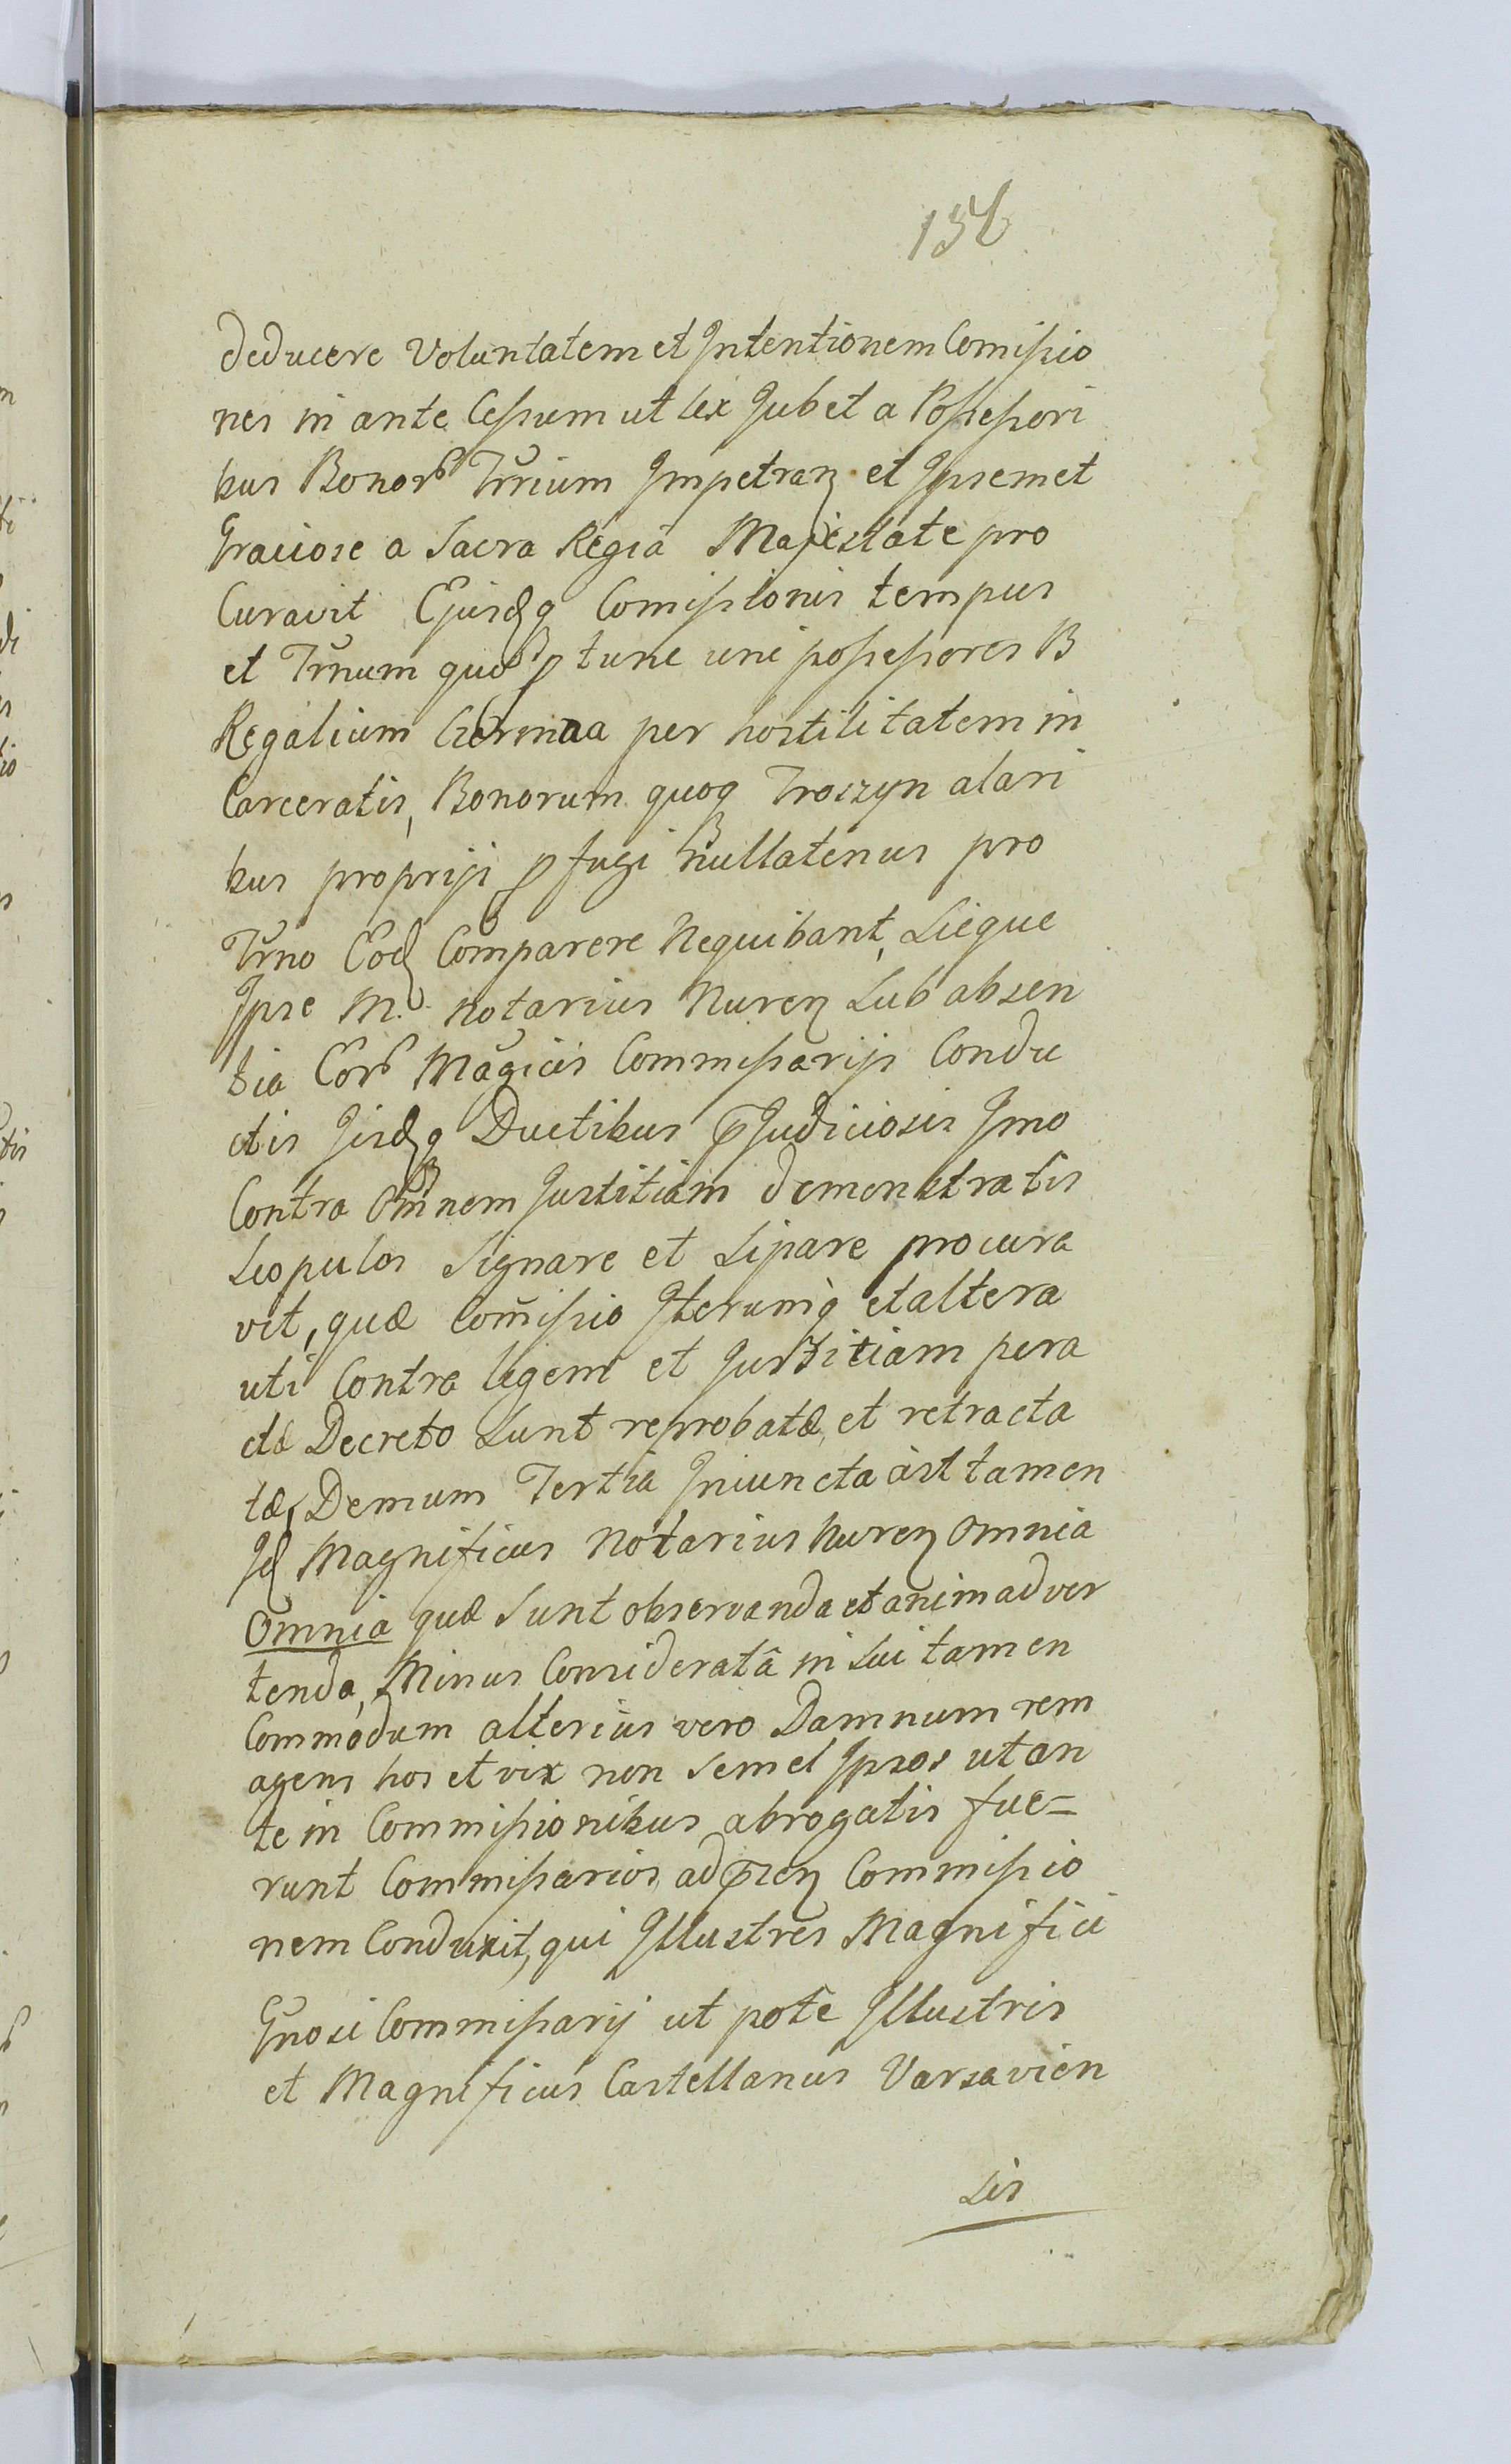 156
deducere Voluntatem et Intentionem Comissio
nes in ante Cessum ut lex Jubet a Possessori
bus Bonor Trrium Impetran et Ipsemet
Graciose a Sacra Regia Majestate pro
Curavit Ejusdq Comissionis tempus
et Trnum quo tunc uni possessores B
Regalium per hostilitatem in
Carceratis, Bonorum quoq Troszyn alari
bus proprijs fugi nullatenus pro
Trno Eod Comparere Nequibant, Sicque
Ipse M. Notarius Nuren Sub absen
tia Cor Magicis Commissarijs Condu
ctis Jisdq Ductibus Judiciosis Imo
Contra Omnem Justitiam demonstratis
Scopulos Signare et Sipare procura
vit, quæ Comissio Iterumq et altera
uti Contra legem et Justitiam pera
ctæ Decreto Sunt reprobatæ, et retracta
tæ, Demum Tertia Iniuncta ast tamen
Id Magnificus Notarius Nuren Omnia
Omnia quæ Sunt observanda et animadver
tenda, Minus Consideratâ in Sui tamen
Commodum alterius vero Damnum rem
agens hos et vix non Semel Ipsos ut an
te in Commissionibus abrogatis fue=
runt Commissarios ad Commissio
nem Conduxit, qui Illustres Magnifici
Gnosi Commissarij ut pote Illustris
et Magnificus Castellanus Varsavien
Sis